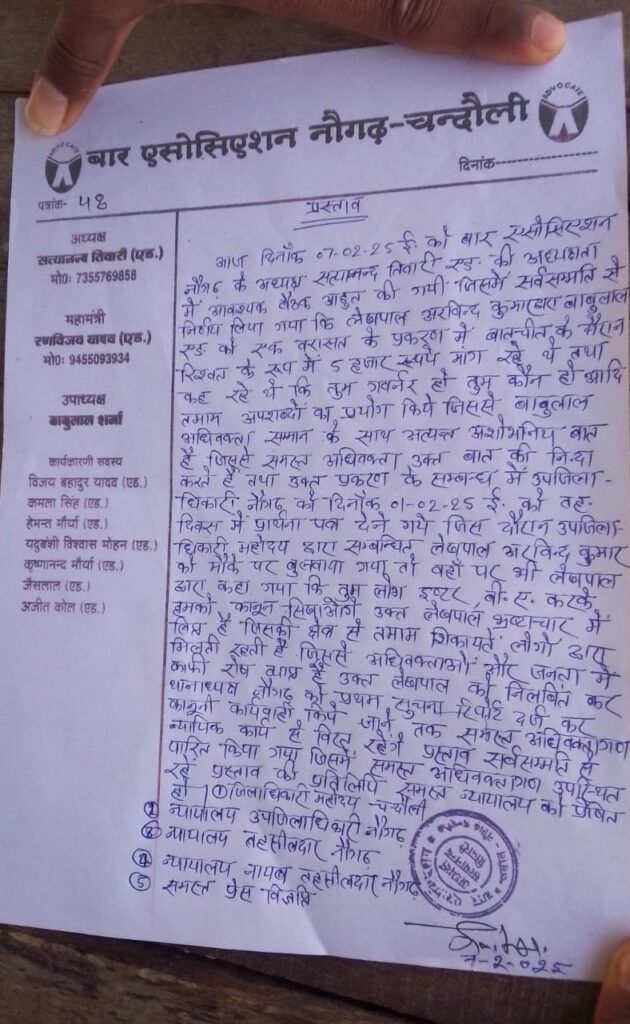 बार एसोसिएशन नौगढ़-चन्दौली
ADVOCATE
ADVOCATE
पत्रांक- 48
दिनांक-
अध्यक्ष
सत्यानन्द तिवारी (एड.)
मो0: 7355769858
महामंत्री
रणविजय यादव (एड.)
मो0: 9455093934
उपाध्यक्ष
बाबुलाल शर्मा
कार्यकारणी सदस्य
विजय बहादुर यादव (एड.)
कमला सिंह (एड.)
हेमन्त मौर्या (एड.)
यदुबंशी विश्वास मोहन (एड.)
कृष्णानन्द मौर्या (एड.)
जैसलाल (एड.)
अजीत कोल (एड.)
प्रस्ताव
आज दिनाँक 07-02-25 ई. को बार एसोसिएशन
नौगढ़ के अध्यक्ष सत्यानन्द तिवारी एड. की अध्यक्षता
में आवश्यक बैठक आहुत की गयी जिसमें सर्वसम्मति से
निर्णय लिया गया कि लेखपाल अरविन्द कुमार द्वारा बाबुलाल
एड. को एक वरासत के प्रकरण में बातचीत के दौरान
रिश्वत के रूप में 5 हजार रूपये मांग रहे थे तथा
कह रहे थे कि तुम गवर्नर हो तुम कौन हो आदि
तमाम अपशब्दों का प्रयोग किये जिससे बाबुलाल
अधिवक्ता समान के साथ अत्यन्त अशोभनिय बात
है जिससे समस्त अधिवक्ता उक्त बात की निन्दा
करते है तथा उक्त प्रकरण के सम्बन्ध में उपजिला-
धिकारी नौगढ़ को दिनाँक 01-02-25 ई. को तह.
दिवस में प्रार्थना पत्र देने गये जिस दौरान उपजिला-
धिकारी महोदय द्वारा सम्बन्धित लेखपाल अरविन्द कुमार
को मौके पर बुलवाया गया तो वहाँ पर भी लेखपाल
द्वारा कहा गया कि तुम लोग इण्टर, बी.ए. करके
हमको कानून सिखाओगे उक्त लेखपाल भ्रष्टाचार में
लिप्त है जिसकी क्षेत्र से तमाम शिकायतें लोगों द्वारा
मिलती रहती है जिससे अधिवक्ताओं और जनता में
काफी रोष व्याप्त है उक्त लेखपाल को निलंबित कर
थानाध्यक्ष नौगढ़ को प्रथम सुचना रिपोर्ट दर्ज कर
कानूनी कार्यवाही किये जाने तक समस्त अधिवक्तागण
न्यायिक कार्य से विरत रहेंगे प्रस्ताव सर्वसम्मति से
पारित किया गया जिसमें समस्त अधिवक्तागण उपस्थित
रहे प्रस्ताव की प्रतिलिपि समस्त न्यायालय को प्रेषित
हो। ① जिलाधिकारी महोदय चन्दौली
② न्यायालय उपजिलाधिकारी नौगढ़
③ न्यायालय तहसीलदार नौगढ़
④ न्यायालय नायब तहसीलदार नौगढ़
⑤ समस्त प्रेस विज्ञप्ति
7-2-2025